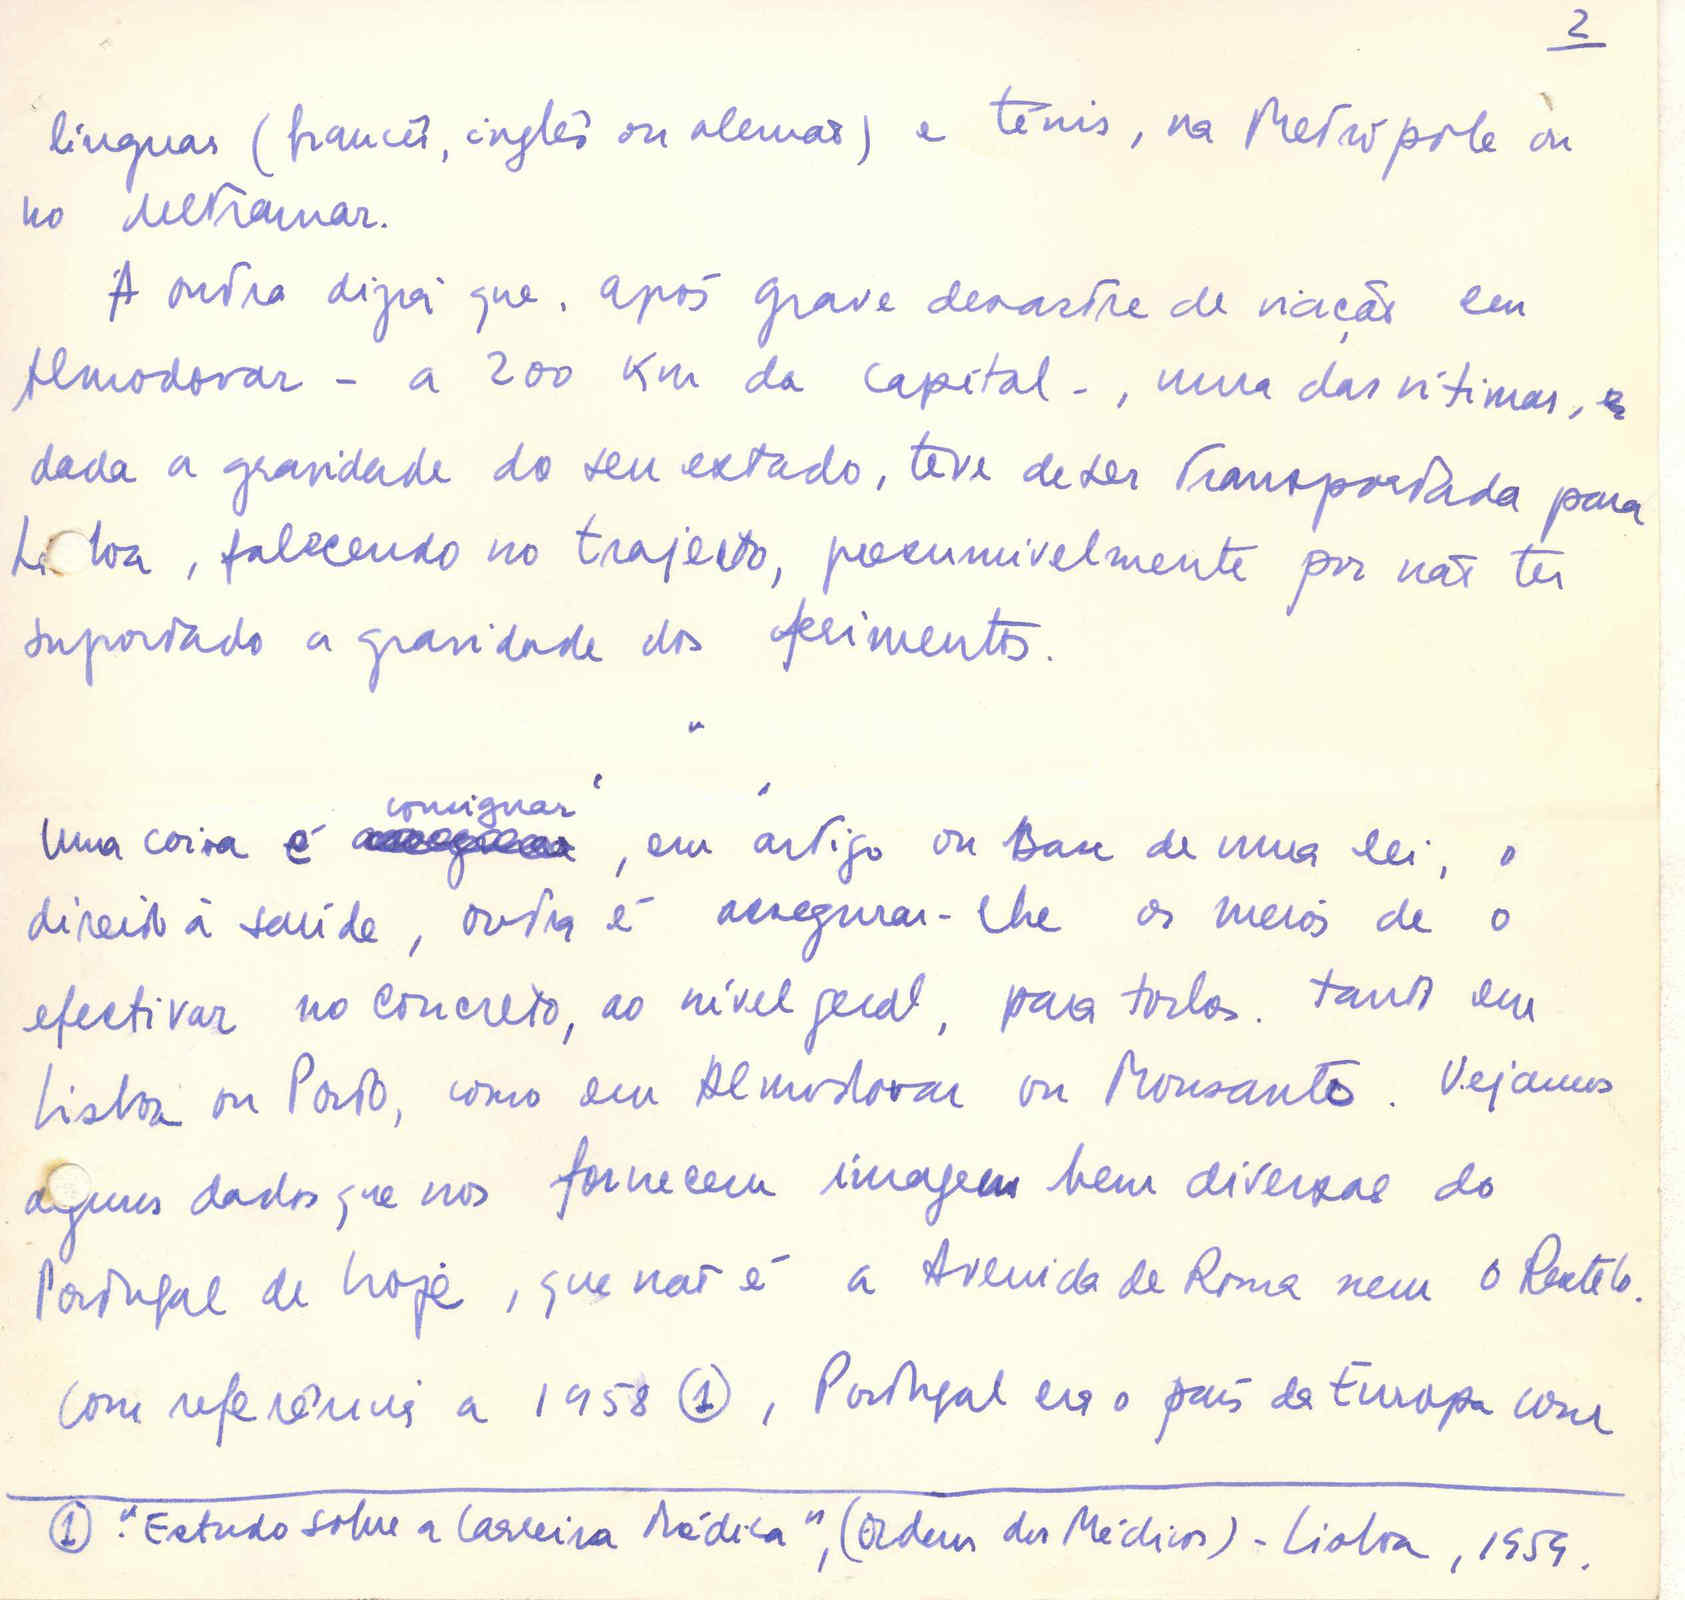 2
línguas (francês, inglês ou alemão) e ténis, na Metrópole ou
no Ultramar.
A outra dizia que, após grave desastre de viação em
Almodovar - a 200 Km da capital -, uma das vítimas,
dada a gravidade do seu estado, teve de ser transportada para
Lisboa, falecendo no trajecto, presumivelmente por não ter
suportado a gravidade dos ferimentos.
consignar
Uma coisa é , em artigo ou Base de uma lei, o
direito à saúde, outra é assegurar-lhe os meios de o
efectivar no concreto, ao nível geral, para todos. Tanto em
Lisboa ou Porto, como em Almodovar ou Monsanto. Vejamos
alguns dados que nos fornecem imagem bem diversas do
Portugal de hoje, que não é a Avenida de Roma nem o Restelo.
Com referência a 1958 (1), Portugal era o país da Europa com
(1) "Estudo sobre a Carreira Médica", (Ordem dos Médicos) - Lisboa, 1959.